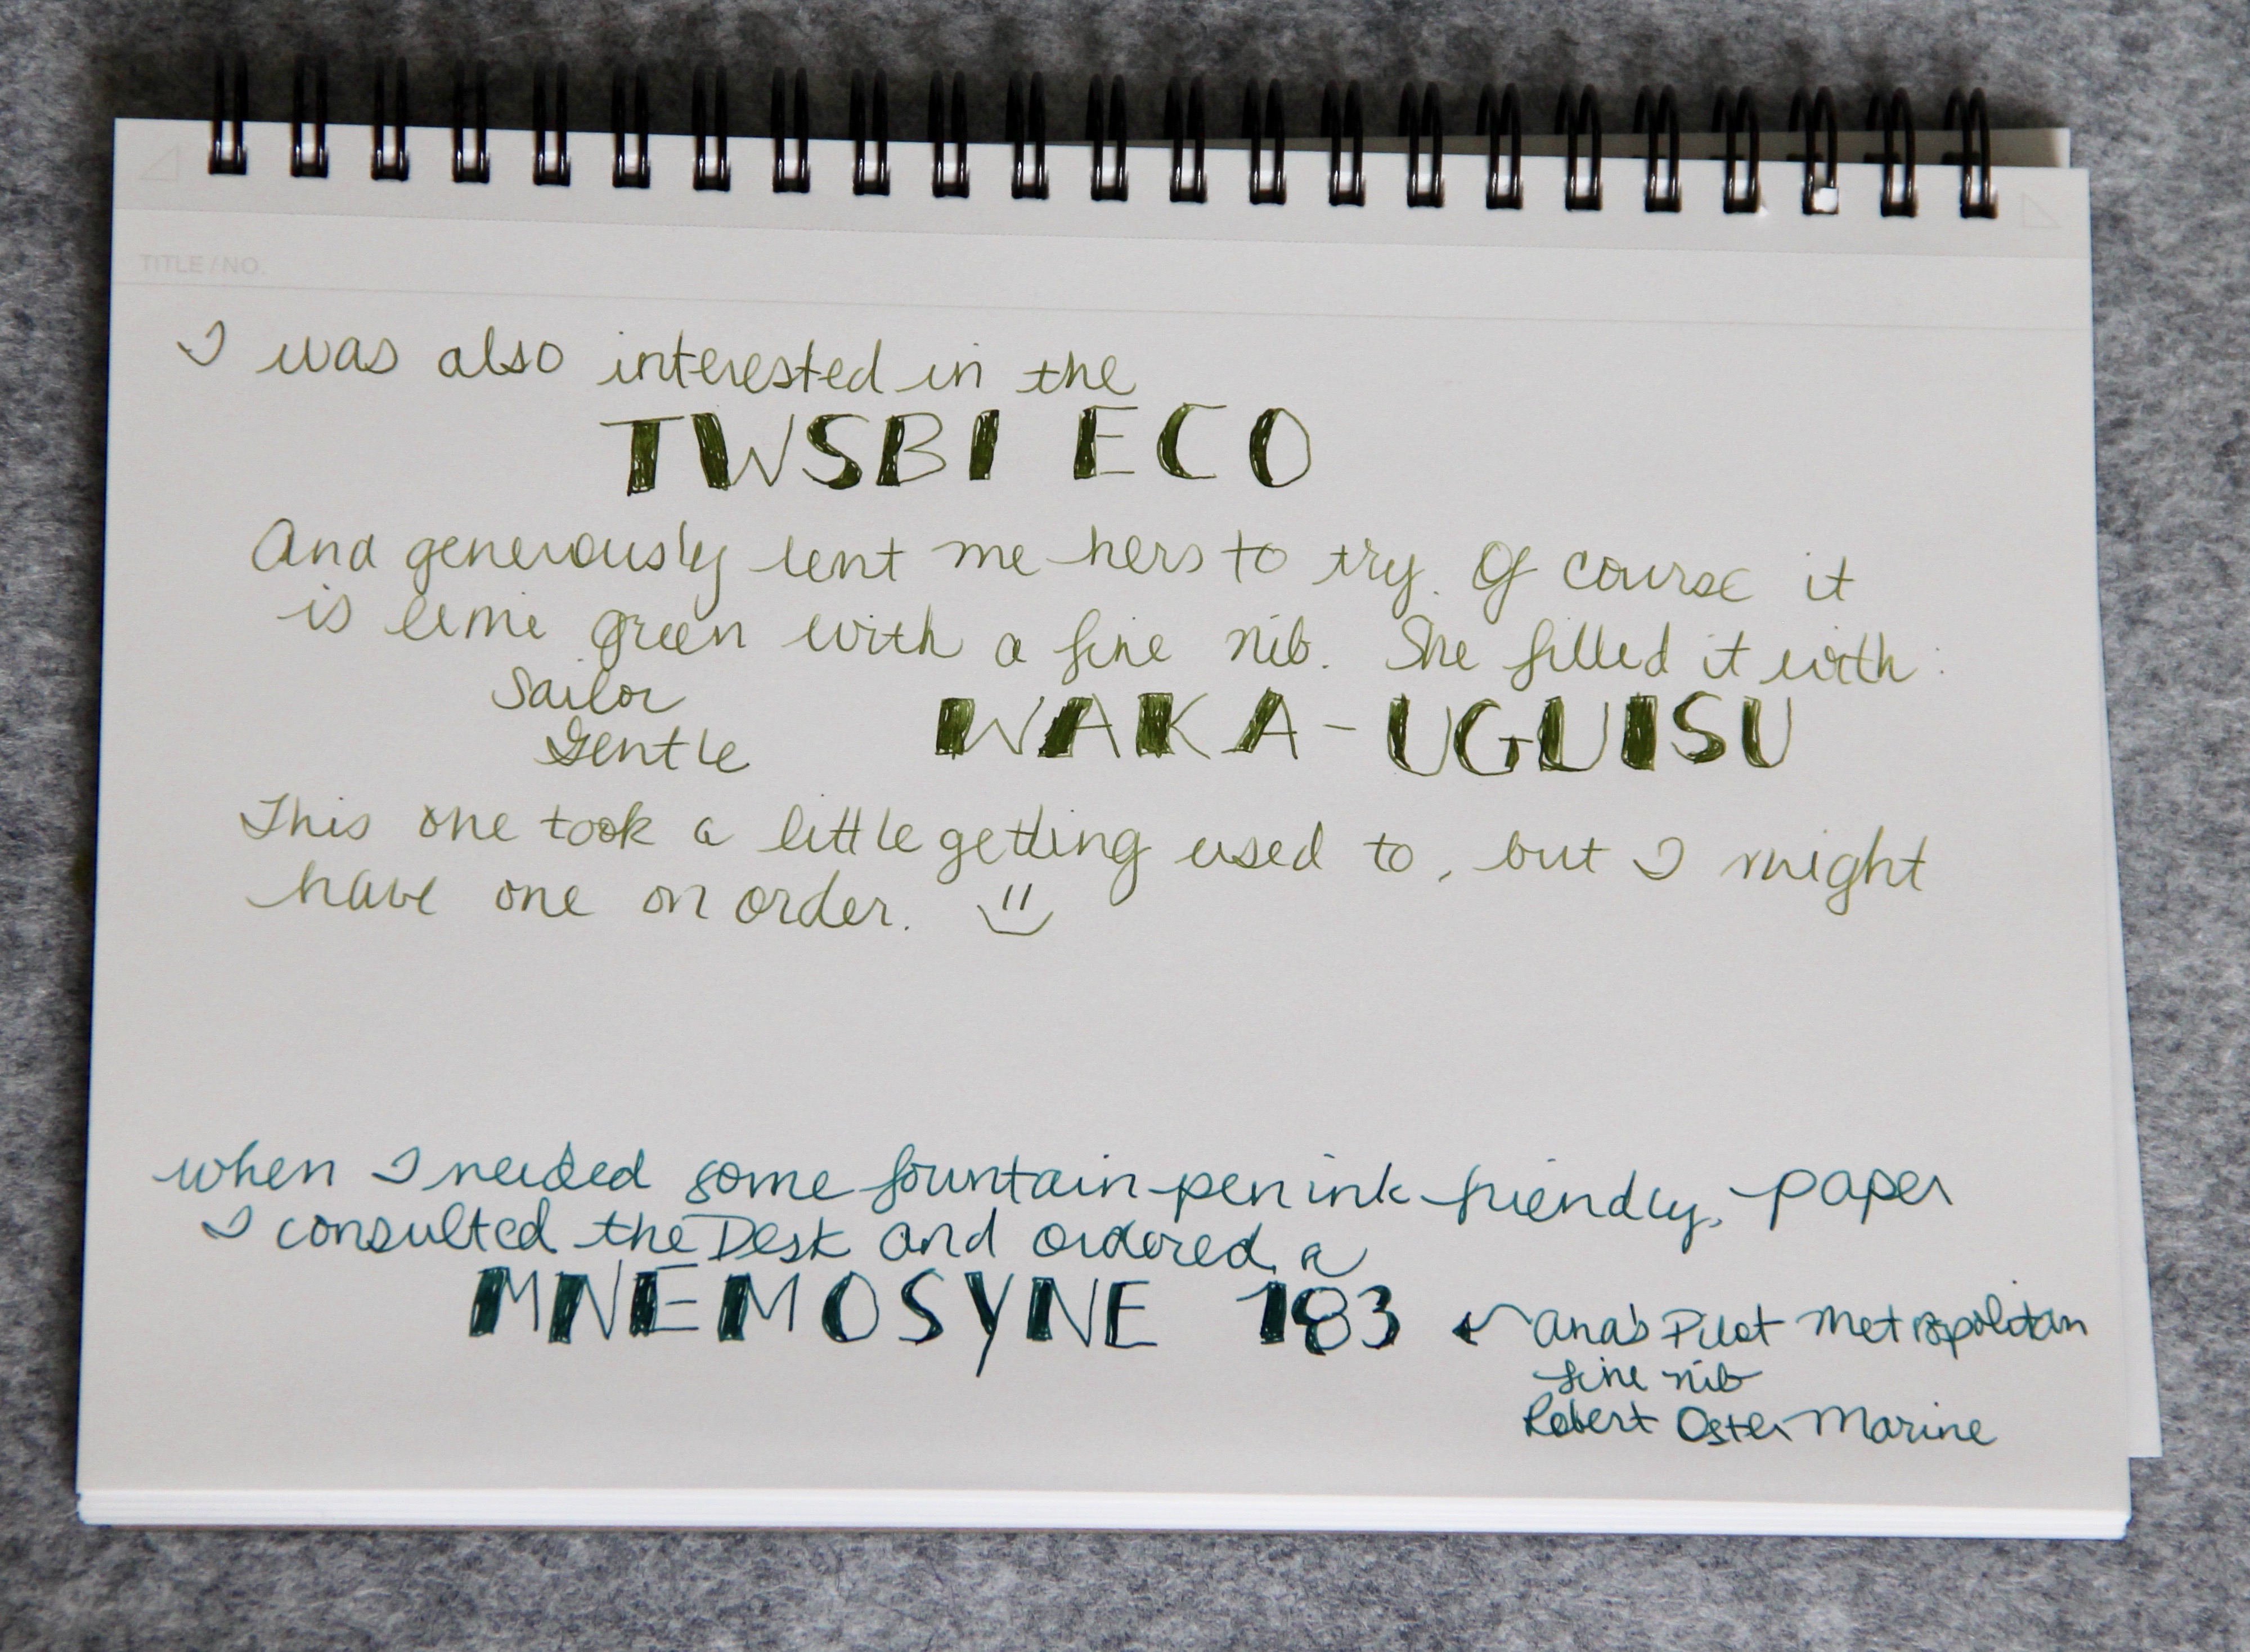 TITLE/NO.
I was also interested in the
TWSBI ECO
And generously lent me hers to try. Of course it
is lime green with a fine nib. She filled it with:
Sailor
Gentle
WAKA-UGUISU
This one took a little getting used to, but I might
have one on order.
when I needed some fountain pen ink friendly, paper
I consulted the Desk and ordered a
MNEMOSYNE 183
Ana's Pilot Metropolitan
fine nib
Robert Oster Marine